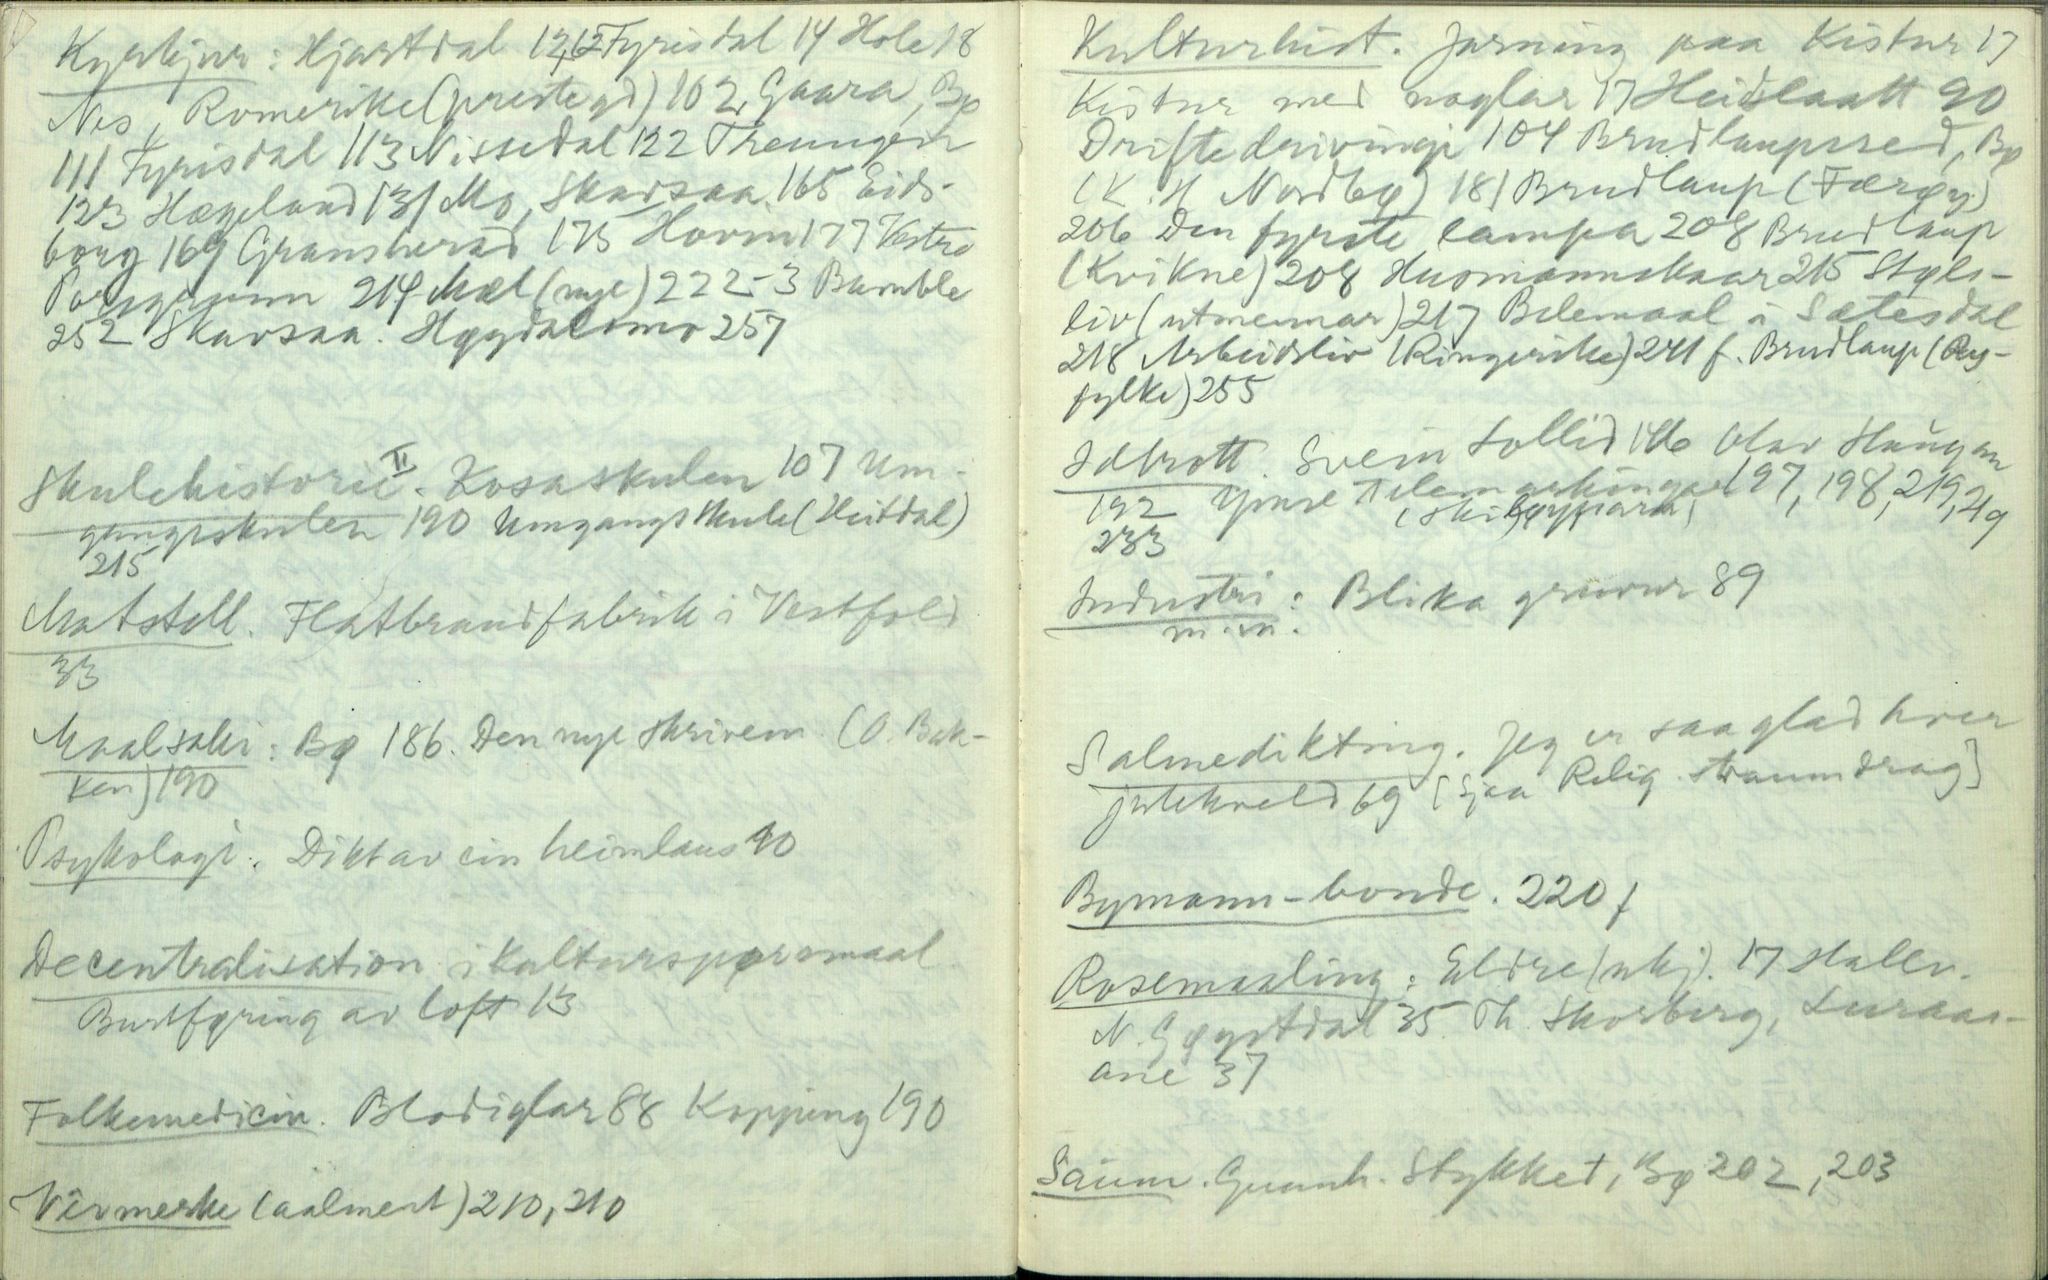 Kyrkjur: Hjartdal 12, 12 Fyrisdal 14 Hole 18
Nes, Romerike (prestegd) 102, Gaara, Bø
111 Fyrisdal 113 Nissedal 122 Treungen
123 Hægeland 131 Mo, Skafsaa 165 Eids-
borg 169 Gransherad 175 Hovin 177 Vestre
Porsgrunn 214 Mæl (nye) 222-3 Bamble
252 Skafsaa. Høydalsmo 257
Skulehistorie II. Kosaskulen 107 Um-
gangsskulen 190 Umgangsskule (Heitdal)
215
Matstell. Flatbraudfabrik i Vestfold
33
Maalsaki: Bø 186. Den nye skrivem. (O. Bak-
ken) 190
Psykologi. Dikt av ein heimlaus 40
Decentralisation i kulturspørsmaal.
Burtføring av loft 13
Folkemedicin. Blodiglar 88 Kopping 190
Vêrmerke (aalment) 210, 210
Kulturhist. Jarning paa Kistur 17
Kistur med naglar 17 Heidlaatt 90
Driftedriving 104 Brudlaupssed, Bø
(K. H. Nordbø) 181 Brudlaup (Færøy)
206 Den fyrste lampa 208 Brudlaup
(Kvikne) 208 Husmannskaar 215 Støls-
liv (utmennar) 217 Belemaal i Sætesdal
218 Arbeidsliv (Ringerike) 241 f. Brudlaup (Ry-
fylke) 255
Idrott. Svein Sollid 146 Olav Haugan
192 Ymse Telemarkingar 197, 198, 219, 249
(Skiløyparar)
233
Industri: Blika gruvur 89
m.m.
Salmedikting. Jeg er saa glad hver
julekveld 69 [Sjaa Relig. straumdrag]
Bymann-bonde. 220 f
Rosemaaling: Eldre (ukj). 17 Hallv.
N. Gøystdal 35. Th. Skorberg, Luraas-
ane 37
Saum. Gunnh. Stykket, Bø 202, 203